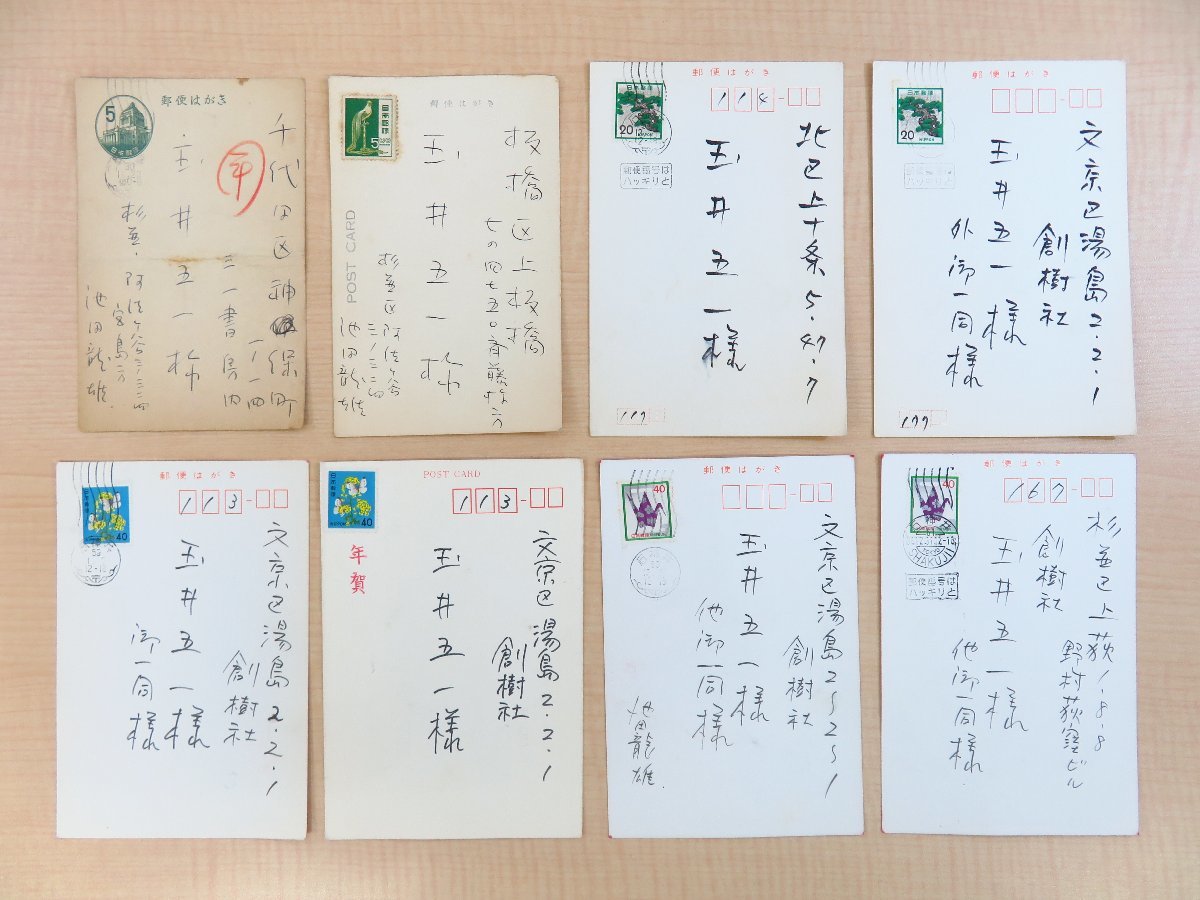 郵便はがき
5
日本郵便
年
千代田区神保町
一ノ一四
三一書房内
玉井五一様
杉並・阿佐ヶ谷三ノ二二四
宮島方
池田龍雄
郵便はがき
日本郵便
POST CARD
板橋区上板橋
七の四七五〇斉藤様方
玉井五一様
杉並区阿佐ヶ谷
三ノ二二四
池田龍雄
郵便はがき
日本郵便
20
NIPPON
郵便番号は
ハッキリと
114
北区上十条5.47.7
玉井五一様
177
郵便はがき
日本郵便
20
NIPPON
郵便番号は
ハッキリと
文京区湯島2.2.1
創樹社
玉井五一様
外御一同様
177
郵便はがき
日本郵便
NIPPON
40
113
文京区湯島2.2.1
創樹社
玉井五一様
御一同様
POST CARD
日本郵便
NIPPON
40
113
年賀
文京区湯島2.2.1
創樹社
玉井五一様
郵便はがき
40
文京区湯島2~2~1
創樹社
玉井五一様
他御一同様
池田龍雄
郵便はがき
40
SHAKUJII
郵便番号は
ハッキリと
167
杉並区上荻1.8.8
野村荻窪ビル
創樹社
玉井五一様
他御一同様